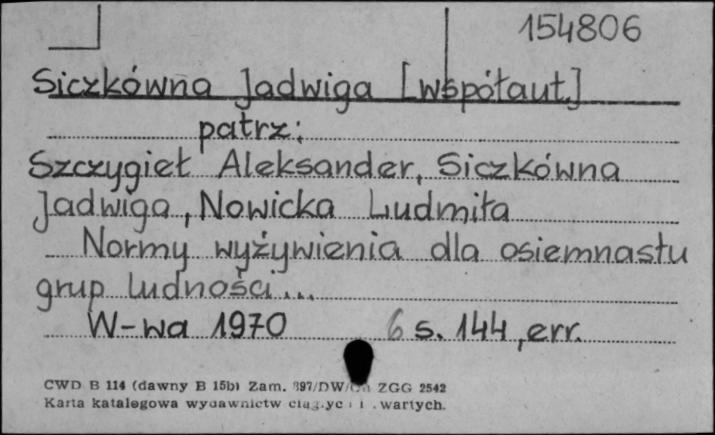 154806
Siczkówna Jadwiga [współaut.]
patrz:
Szczygieł Aleksander, Siczkówna
Jadwiga, Nowicka Ludmiła
Normy wyżywienia dla osiemnastu
grup ludności...
W-wa 1970 6 s. 144, err.
CWD B 114 (dawny B 15b) Zam. 397/DW/ ZGG 2542
Karta katalogowa wydawnictw i zwartych.